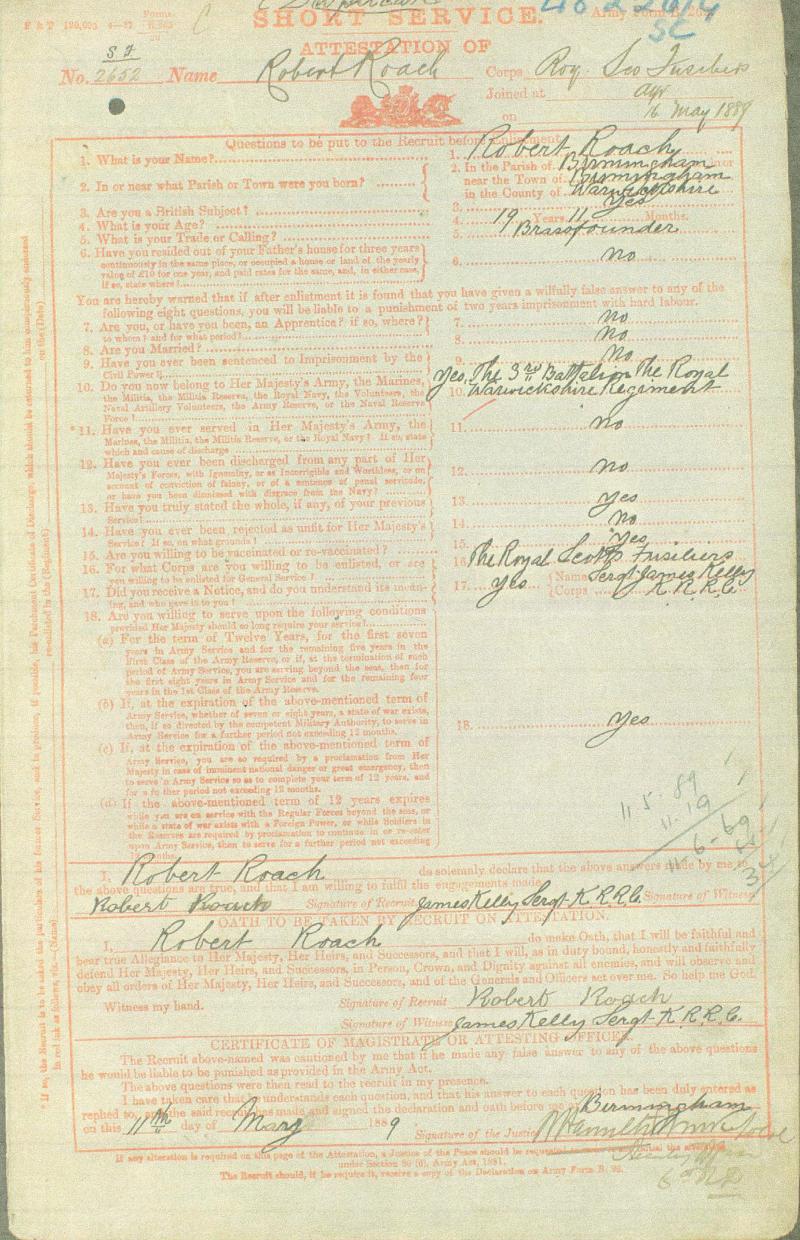 F & P 120,000 4—87 Forms B.265 20
SHORT SERVICE.
Army Form B.
ATTESTATION OF
S F
No. 2652 Name Robert Roach Corps Roy. Sco Fusiliers
Joined at Ayr
on 16 May 1889
Questions to be put to the Recruit before Enlistment.
1. What is your Name? 1. Robert Roach
2. In or near what Parish or Town were you born? 2. In the Parish of Birmingham near the Town of Birmingham in the County of Warwickshire
3. Are you a British Subject? 3. Yes
4. What is your Age? 4. 19 Years 11 Months.
5. What is your Trade or Calling? 5. Brassfounder
6. Have you resided out of your Father's house for three years 6. No
continuously in the same place, or occupied a house or land of the yearly
value of £10 for one year, and paid rates for the same, and, in either case,
if so, state where?
You are hereby warned that if after enlistment it is found that you have given a wilfully false answer to any of the
following eight questions, you will be liable to a punishment of two years imprisonment with hard labour.
7. Are you, or have you been, an Apprentice? if so, where? 7. No
to whom? and for what period?
8. Are you Married? 8. No
9. Have you ever been sentenced to Imprisonment by the 9. No
Civil Power?
10. Do you now belong to Her Majesty's Army, the Marines, 10. Yes, The 3rd Battalion The Royal Warwickshire Regiment
the Militia, the Militia Reserve, the Royal Navy, the Volunteers, the
Naval Artillery Volunteers, the Army Reserve, or the Naval Reserve
Force?
*11. Have you ever served in Her Majesty's Army, the 11. No
Marines, the Militia, the Militia Reserve, or the Royal Navy? If so, state
which and cause of discharge
12. Have you ever been discharged from any part of Her 12. No
Majesty's Forces, with Ignominy, or as Incorrigible and Worthless, or on
account of conviction of felony, or of a sentence of penal servitude,
or have you been dismissed with disgrace from the Navy?
13. Have you truly stated the whole, if any, of your previous 13. Yes
Service?
14. Have you ever been rejected as unfit for Her Majesty's 14. No
Service? If so, on what grounds?
15. Are you willing to be vaccinated or re-vaccinated? 15. Yes
16. For what Corps are you willing to be enlisted, or are 16. The Royal Scots Fusiliers
you willing to be enlisted for General Service?
17. Did you receive a Notice, and do you understand its mean- 17. Yes Name Sergt James Kelly
ing, and who gave it to you? Corps K.R.R.C.
18. Are you willing to serve upon the following conditions
provided Her Majesty should so long require your service?
(a) For the term of Twelve Years, for the first seven
years in Army Service and for the remaining five years in the
First Class of the Army Reserve, or if, at the termination of such
period of Army Service, you are serving beyond the seas, then for
the first eight years in Army Service and for the remaining four
years in the 1st Class of the Army Reserve.
(b) If, at the expiration of the above-mentioned term of
Army Service, whether of seven or eight years, a state of war exists,
then, if so directed by the competent Military Authority, to serve in
Army Service for a further period not exceeding 12 months.
18. Yes
(c) If, at the expiration of the above-mentioned term of
Army Service, you are so required by a proclamation from Her
Majesty in case of imminent national danger or great emergency, then
to serve in Army Service so as to complete your term of 12 years, and
for a further period not exceeding 12 months.
(d) If the above-mentioned term of 12 years expires
while you are on service with the Regular Forces beyond the seas, or
while a state of war exists with a Foreign Power, or while Soldiers in
the Reserves are required by proclamation to continue in or re-enter
upon Army Service, then to serve for a further period not exceeding
12 months.
11 5 89
11 19
11-6-69
I, Robert Roach do solemnly declare that the above answers made by me to
the above questions are true, and that I am willing to fulfil the engagements made.
Robert Roach Signature of Recruit James Kelly Sergt K.R.R.C. Signature of Witness
OATH TO BE TAKEN BY RECRUIT ON ATTESTATION.
I, Robert Roach do make Oath, that I will be faithful and
bear true Allegiance to Her Majesty, Her Heirs, and Successors, and that I will, as in duty bound, honestly and faithfully
defend Her Majesty, Her Heirs, and Successors, in Person, Crown, and Dignity against all enemies, and will observe and
obey all orders of Her Majesty, Her Heirs, and Successors, and of the Generals and Officers set over me. So help me God.
Witness my hand. Signature of Recruit Robert Roach
Signature of Witness James Kelly Sergt K.R.R.C.
CERTIFICATE OF MAGISTRATE OR ATTESTING OFFICER.
The Recruit above-named was cautioned by me that if he made any false answer to any of the above questions
he would be liable to be punished as provided in the Army Act.
The above questions were then read to the recruit in my presence.
I have taken care that he understands each question, and that his answer to each question has been duly entered as
replied to, and the said recruit has made and signed the declaration and oath before me at Birmingham
on this 11th day of May 1889
Signature of the Justice
If any alteration is required on this page of the Attestation, a Justice of the Peace should be requested
under Section 80 (6), Army Act, 1881.
The Recruit should, if he require it, receive a copy of the Declaration on Army Form B.
* If so, the Recruit is to be asked the particulars of his former Service, and to produce, if possible, his Parchment Certificate of Discharge, which should be returned to him conspicuously endorsed
in red ink as follows, viz.—(Name) re-enlisted in the (Regiment) on the (Date)